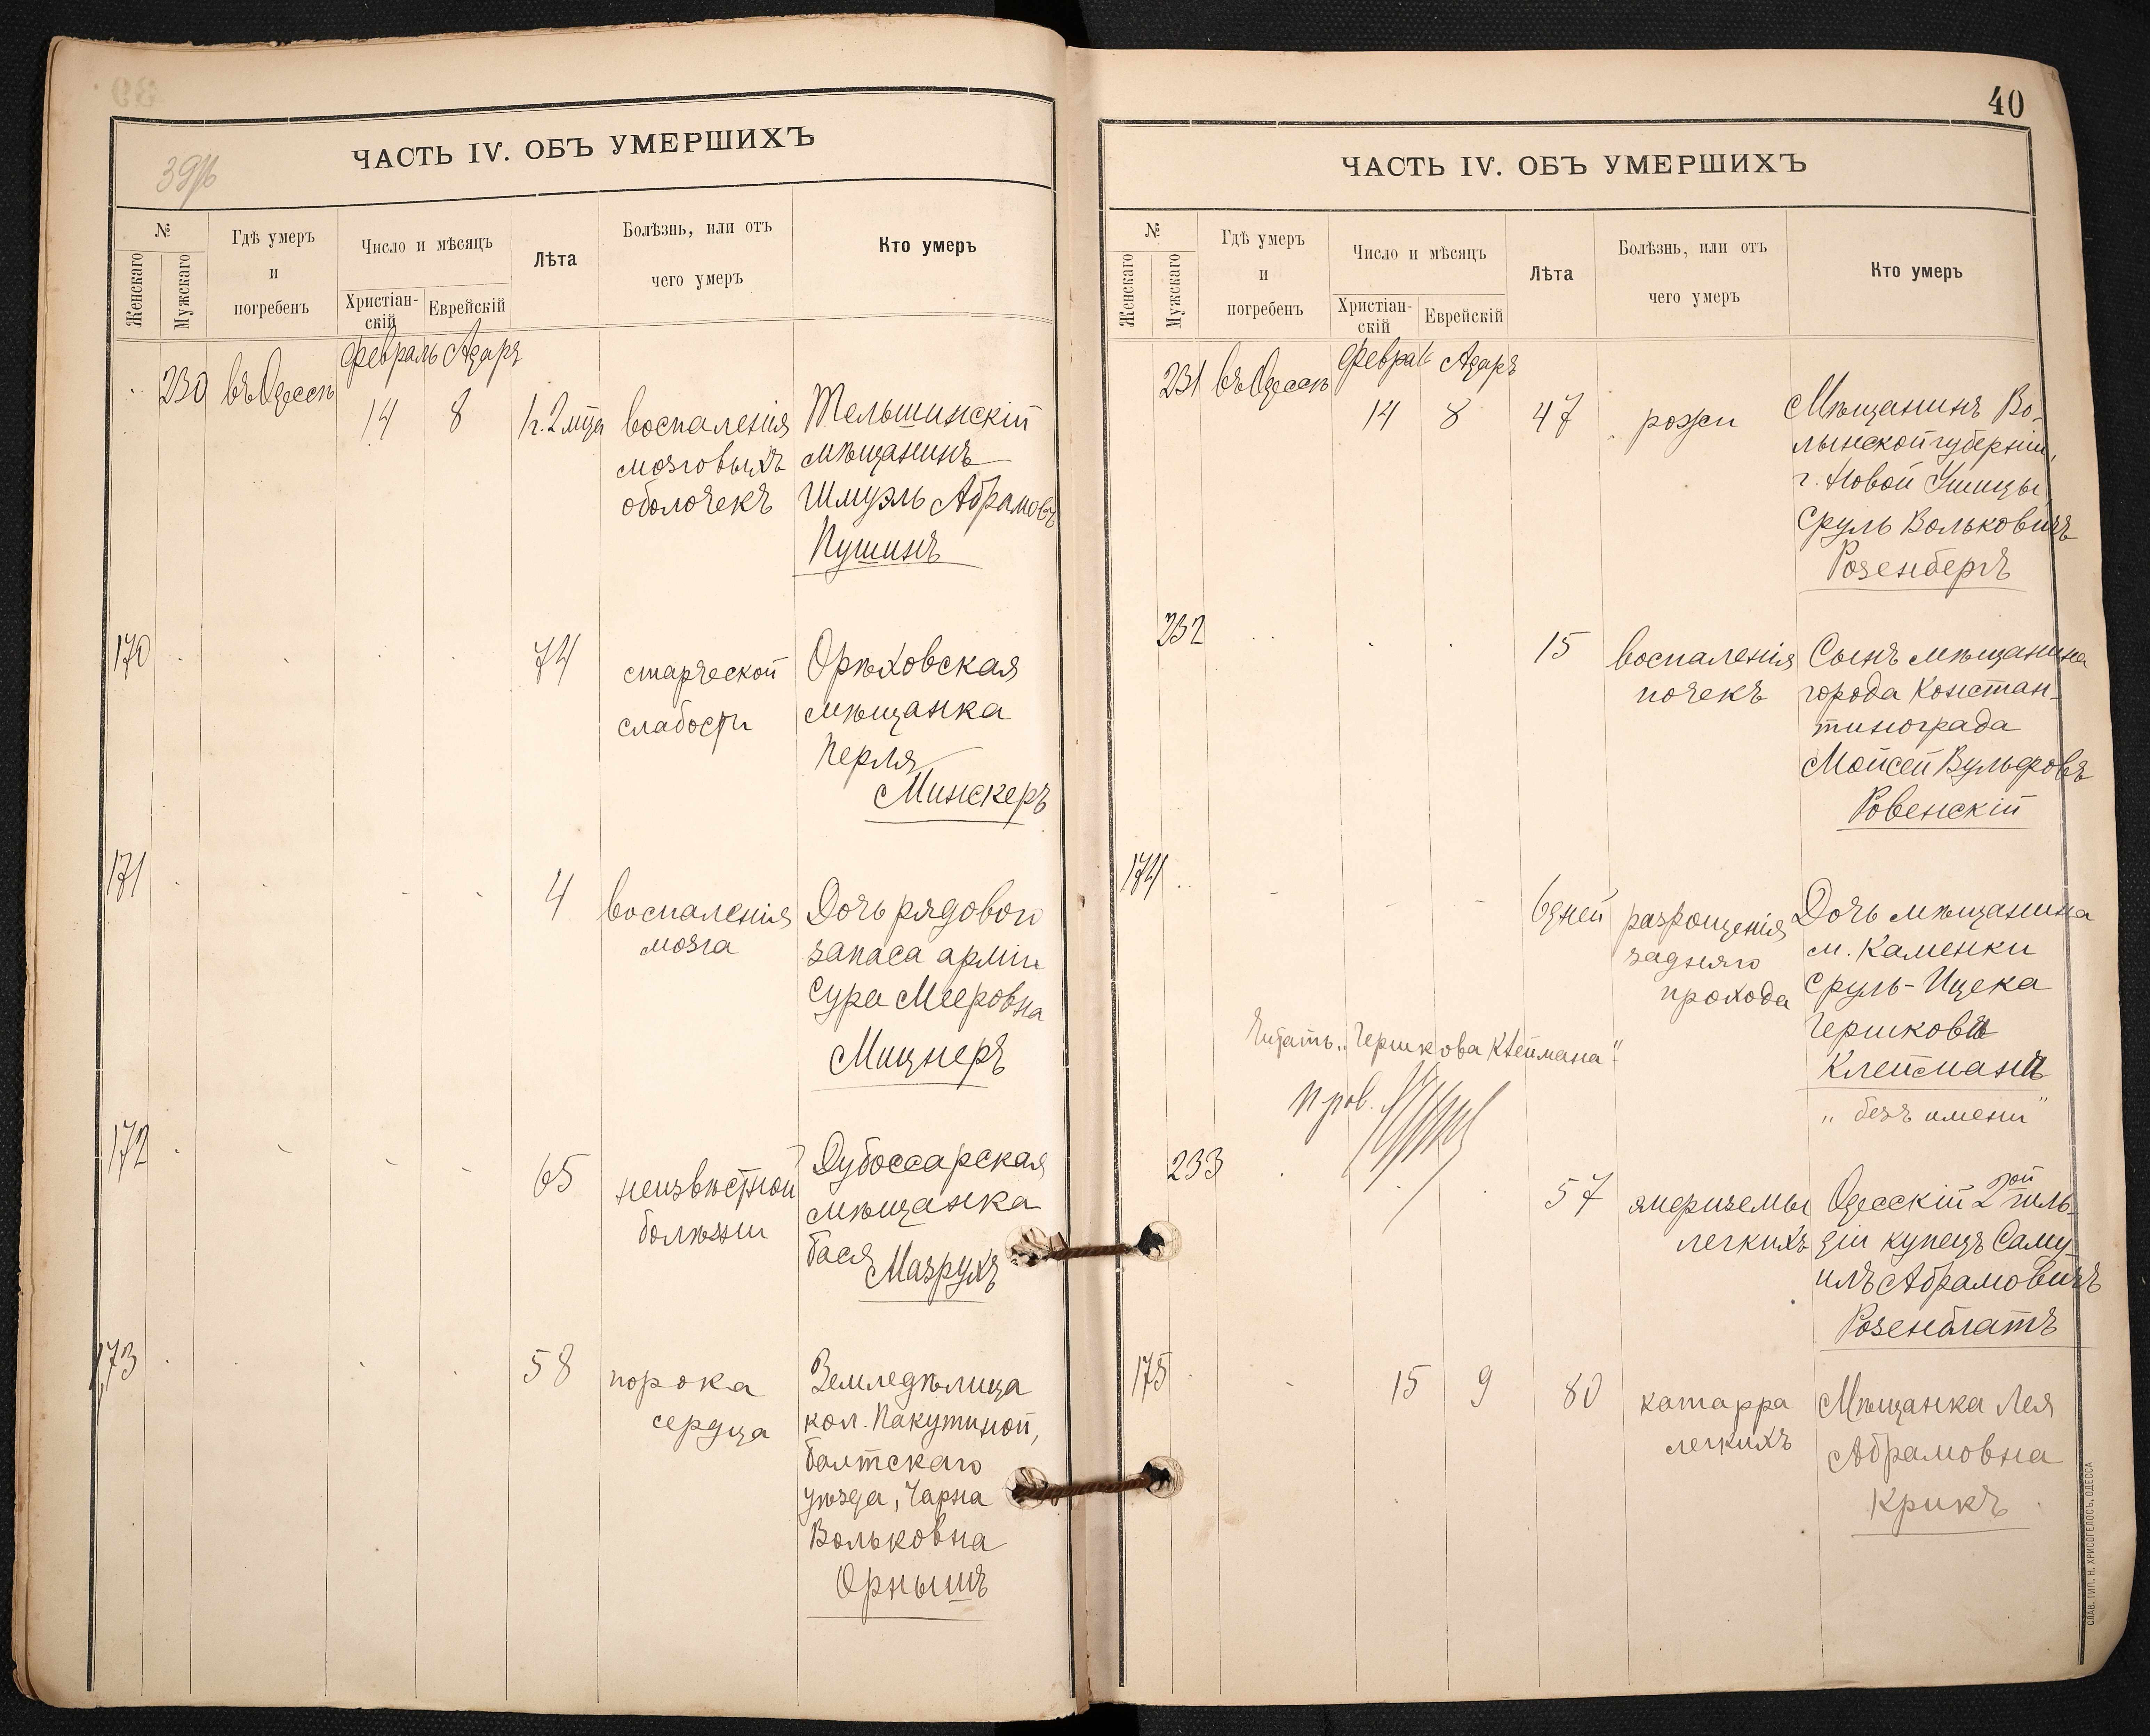 39об
ЧАСТЬ IV. ОБЪ УМЕРШИХЪ
№
Женскаго
Мужскаго
Гдѣ умеръ
и
погребенъ
Число и мѣсяцъ
Христіан-
скій
Еврейскій
Лѣта
Болѣзнь, или отъ
чего умеръ
Кто умеръ
Февраль Адаръ
230 въ Одессѣ
14 8 1 г. 2 мѣс
воспаленія
мозговыхъ
оболочекъ
Тельшинскій
мѣщанинъ
Шмуэль Абрамовъ
Пушинъ
170
74
старческой
слабости
Орѣховская
мѣщанка
Перля
Минскеръ
171
4
воспаленія
мозга
Дочь рядового
запаса арміи
Сура Мееровна
Мицнеръ
172
65
неизвѣстной
болѣзни
Дубоссарская
мѣщанка
Бася
Мазрухъ
173
58
порока
сердца
Земледѣлица
кол. Пакутиной,
Балтскаго
уѣзда, Чарна
Вольковна
Орнышъ
40
ЧАСТЬ IV. ОБЪ УМЕРШИХЪ
№
Женскаго
Мужскаго
Гдѣ умеръ
и
погребенъ
Число и мѣсяцъ
Христіан-
скій
Еврейскій
Лѣта
Болѣзнь, или отъ
чего умеръ
Кто умеръ
Феврал Адаръ
231 въ Одессѣ
14 8 47
рожи
Мѣщанинъ Во-
лынской губерніи,
г. Новой Ушицы
Сруль Вольковичъ
Розенбергъ
232
15
воспаленія
почекъ
Сынъ мѣщанина
города Констан-
тинограда
Мойсей Вульфовъ
Ровенскій
174
6 дней
разрощенія
задняго
прохода
Дочь мѣщанина
м. Каменки
Сруль-Ицека
Гершкова
Клеймана
„без имени"
Читать „Гершкова Клеймана"
Пров.
233
57
эмфиземы
легкихъ
Одесскій 2ой гиль-
діи купецъ Саму-
илъ Абрамовичъ
Розенблатъ
175
15 9 80
катарра
легкихъ
Мѣщанка Лея
Абрамовна
Крикъ
СЛАВ. ТИП. Н. ХРИСОГЕЛОСЪ, ОДЕССА